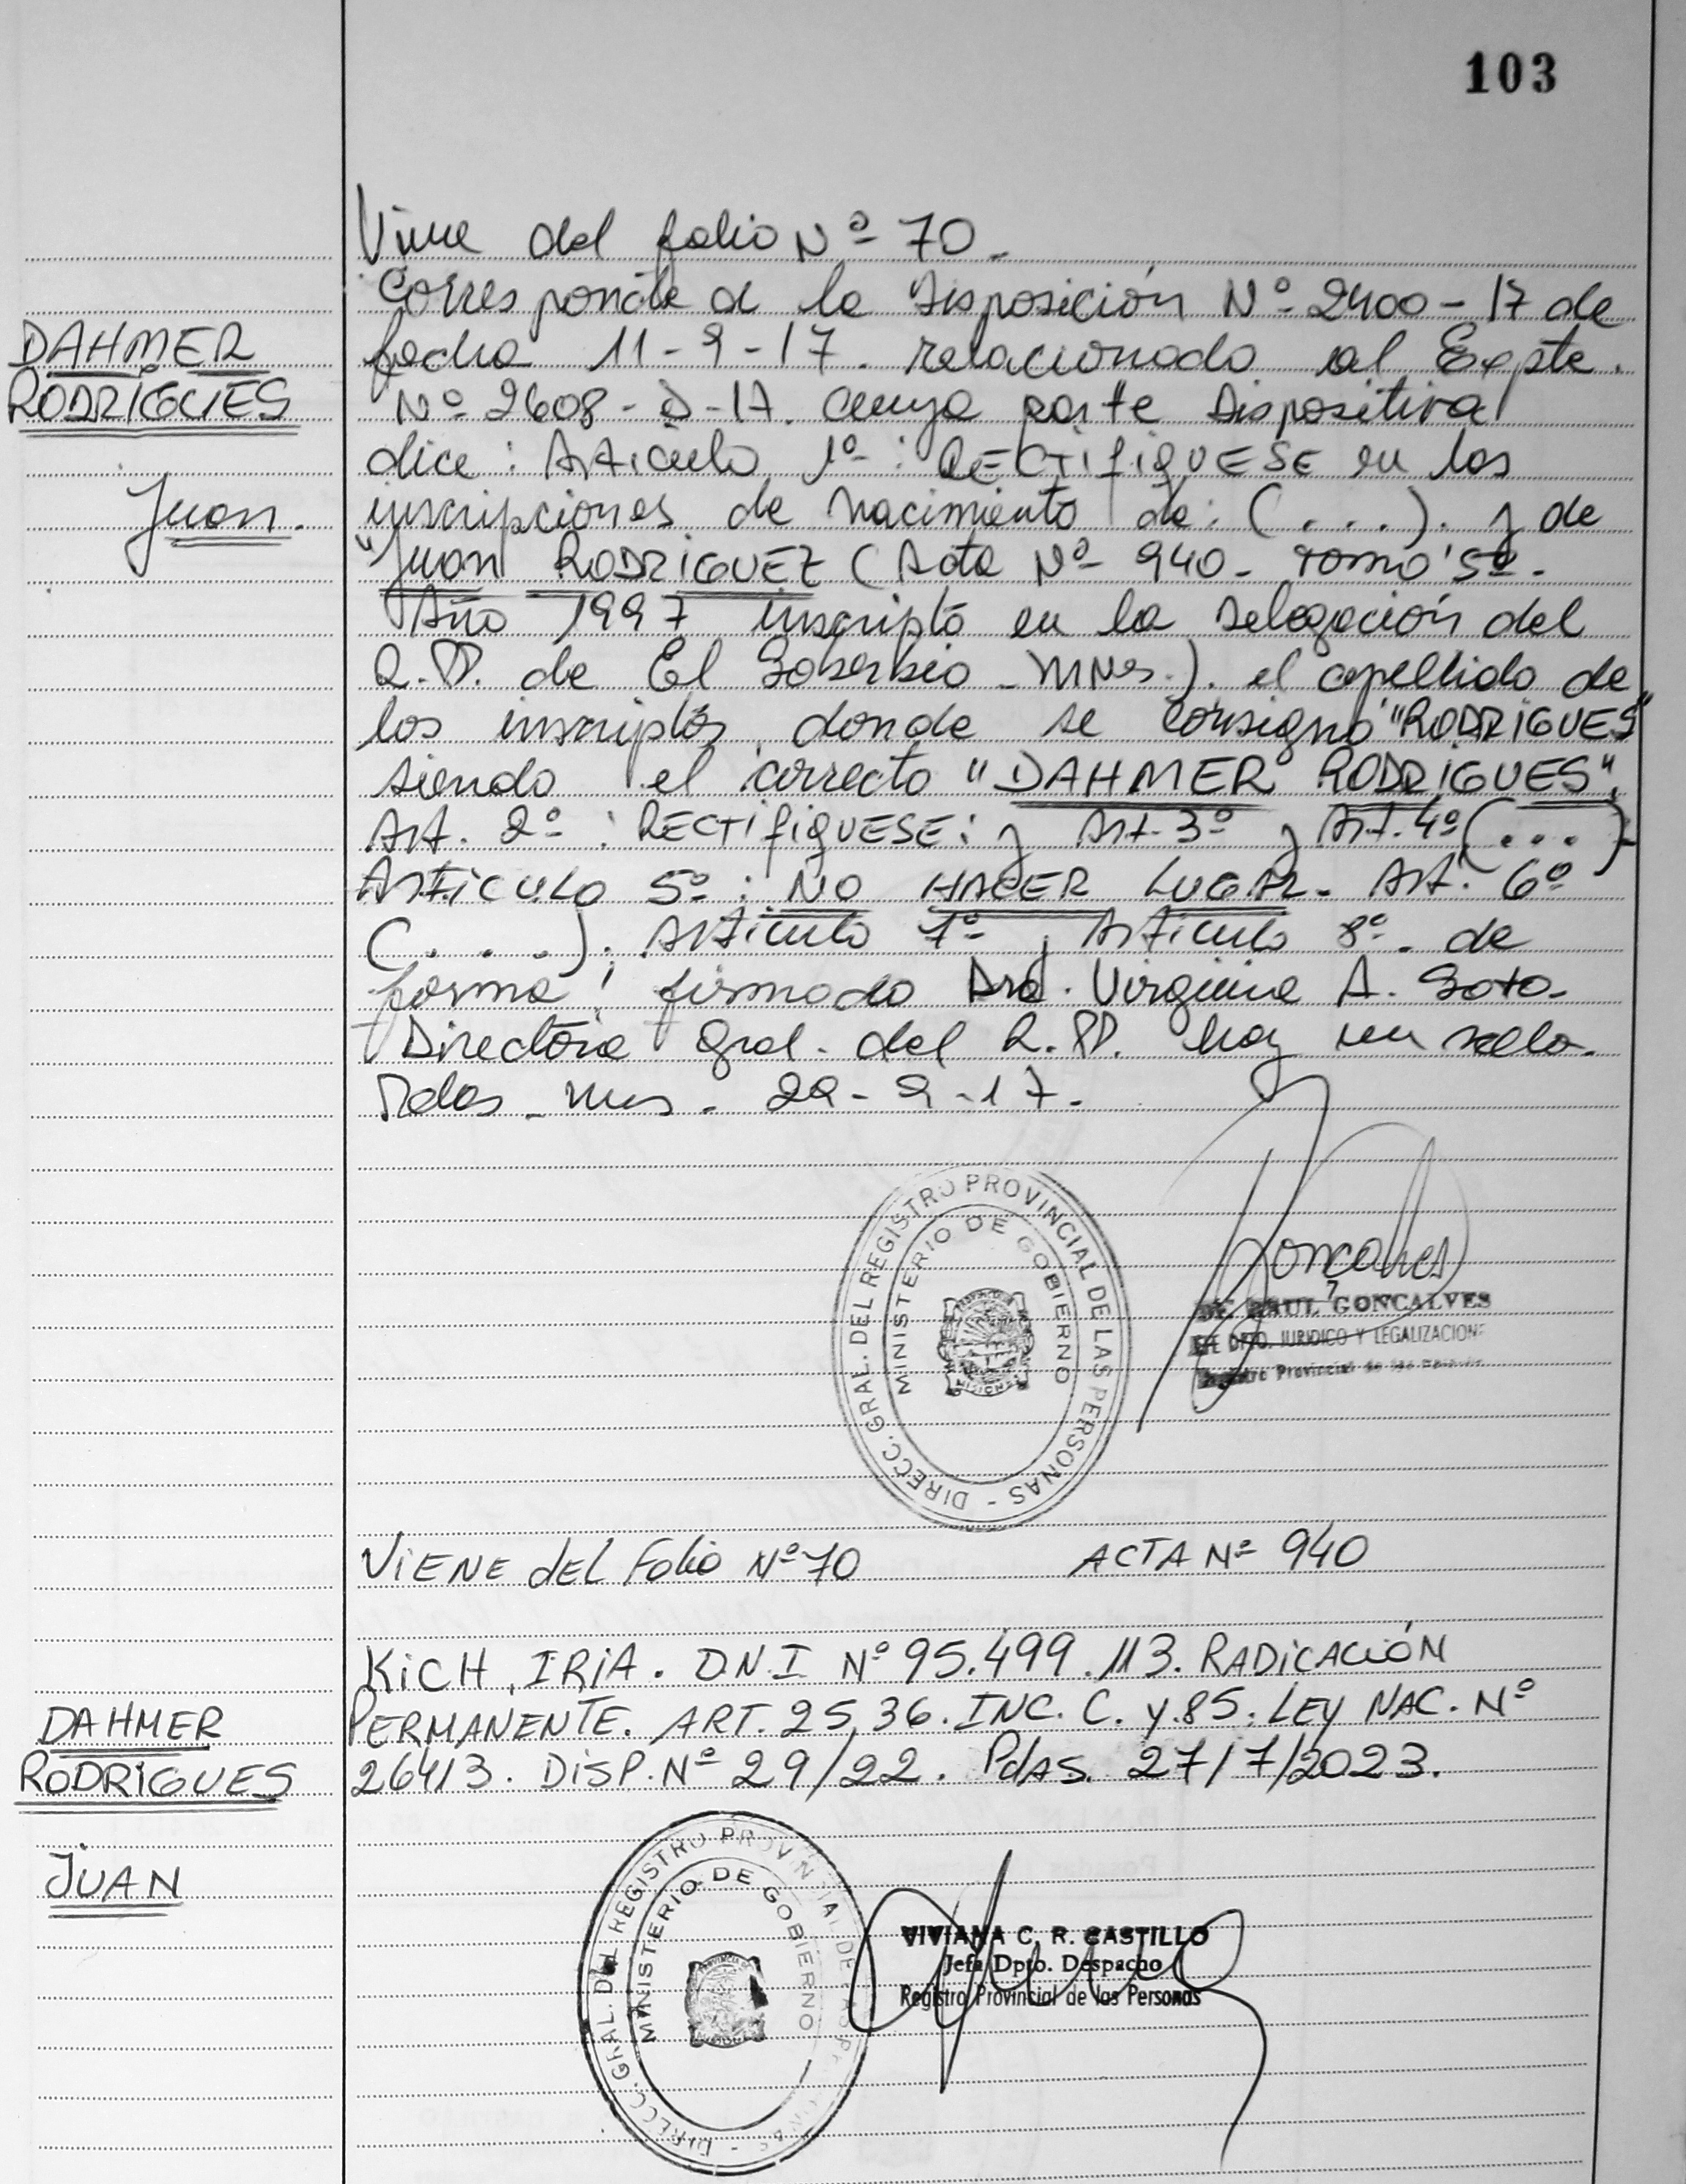 103
Viene del folio Nº 70.
Corresponde a la Disposición Nº 2400-17 de
DAHMER
fecha 11-9-17. relacionado al Expte.
RODRÍGUES
Nº 2608-D-17. cuya parte Dispositiva
dice: Artículo 1º: RECTIFIQUESE en las
Juan.
inscripciones de nacimiento de: (...). y de
"Juan RODRIGUEZ (Acta Nº 940 - Tomo 5º -
Año 1997 inscripto en la Delegación del
R.PP. de El Soberbio - Mnes.). el apellido de
los inscriptos, donde se consignó "RODRIGUES"
siendo el correcto "DAHMER RODRIGUES".
Art. 2º: RECTIFIQUESE: y Art. 3º y Art. 4º (...)-
Artículo 5º: NO HACER LUGAR. Art. 6º
(...). Artículo 7º y Artículo 8º. de
forma; firmado Dra. Virginia A. Soto.
Directora Gral. del R.PP. hay un sello.
Pdas. Mnes. 22-9-17.
DIRECC. GRAL. DEL REGISTRO PROVINCIAL DE LAS PERSONAS -
MINISTERIO DE GOBIERNO
MISIONES
Goncalves
RAUL GONCALVES
DPTO. JURIDICO Y LEGALIZACIONE
Provincial de las
VIENE dEL Folio Nº 70 ACTA Nº 940
KICH, IRIA. D.N.I Nº 95.499.113. RADICACIÓN
DAHMER
PERMANENTE. ART. 25, 36. INC. C. y 85. LEY NAC. Nº
RODRIGUES
26413. DISP. Nº 29/22. PdAS. 27/7/2023.
JUAN
DIRECC. GRAL. DEL REGISTRO PROVINCIAL DE
MINISTERIO DE GOBIERNO
VIVIANA C. R. CASTILLO
Jefa Dpto. Despacho
Registro Provincial de las Personas